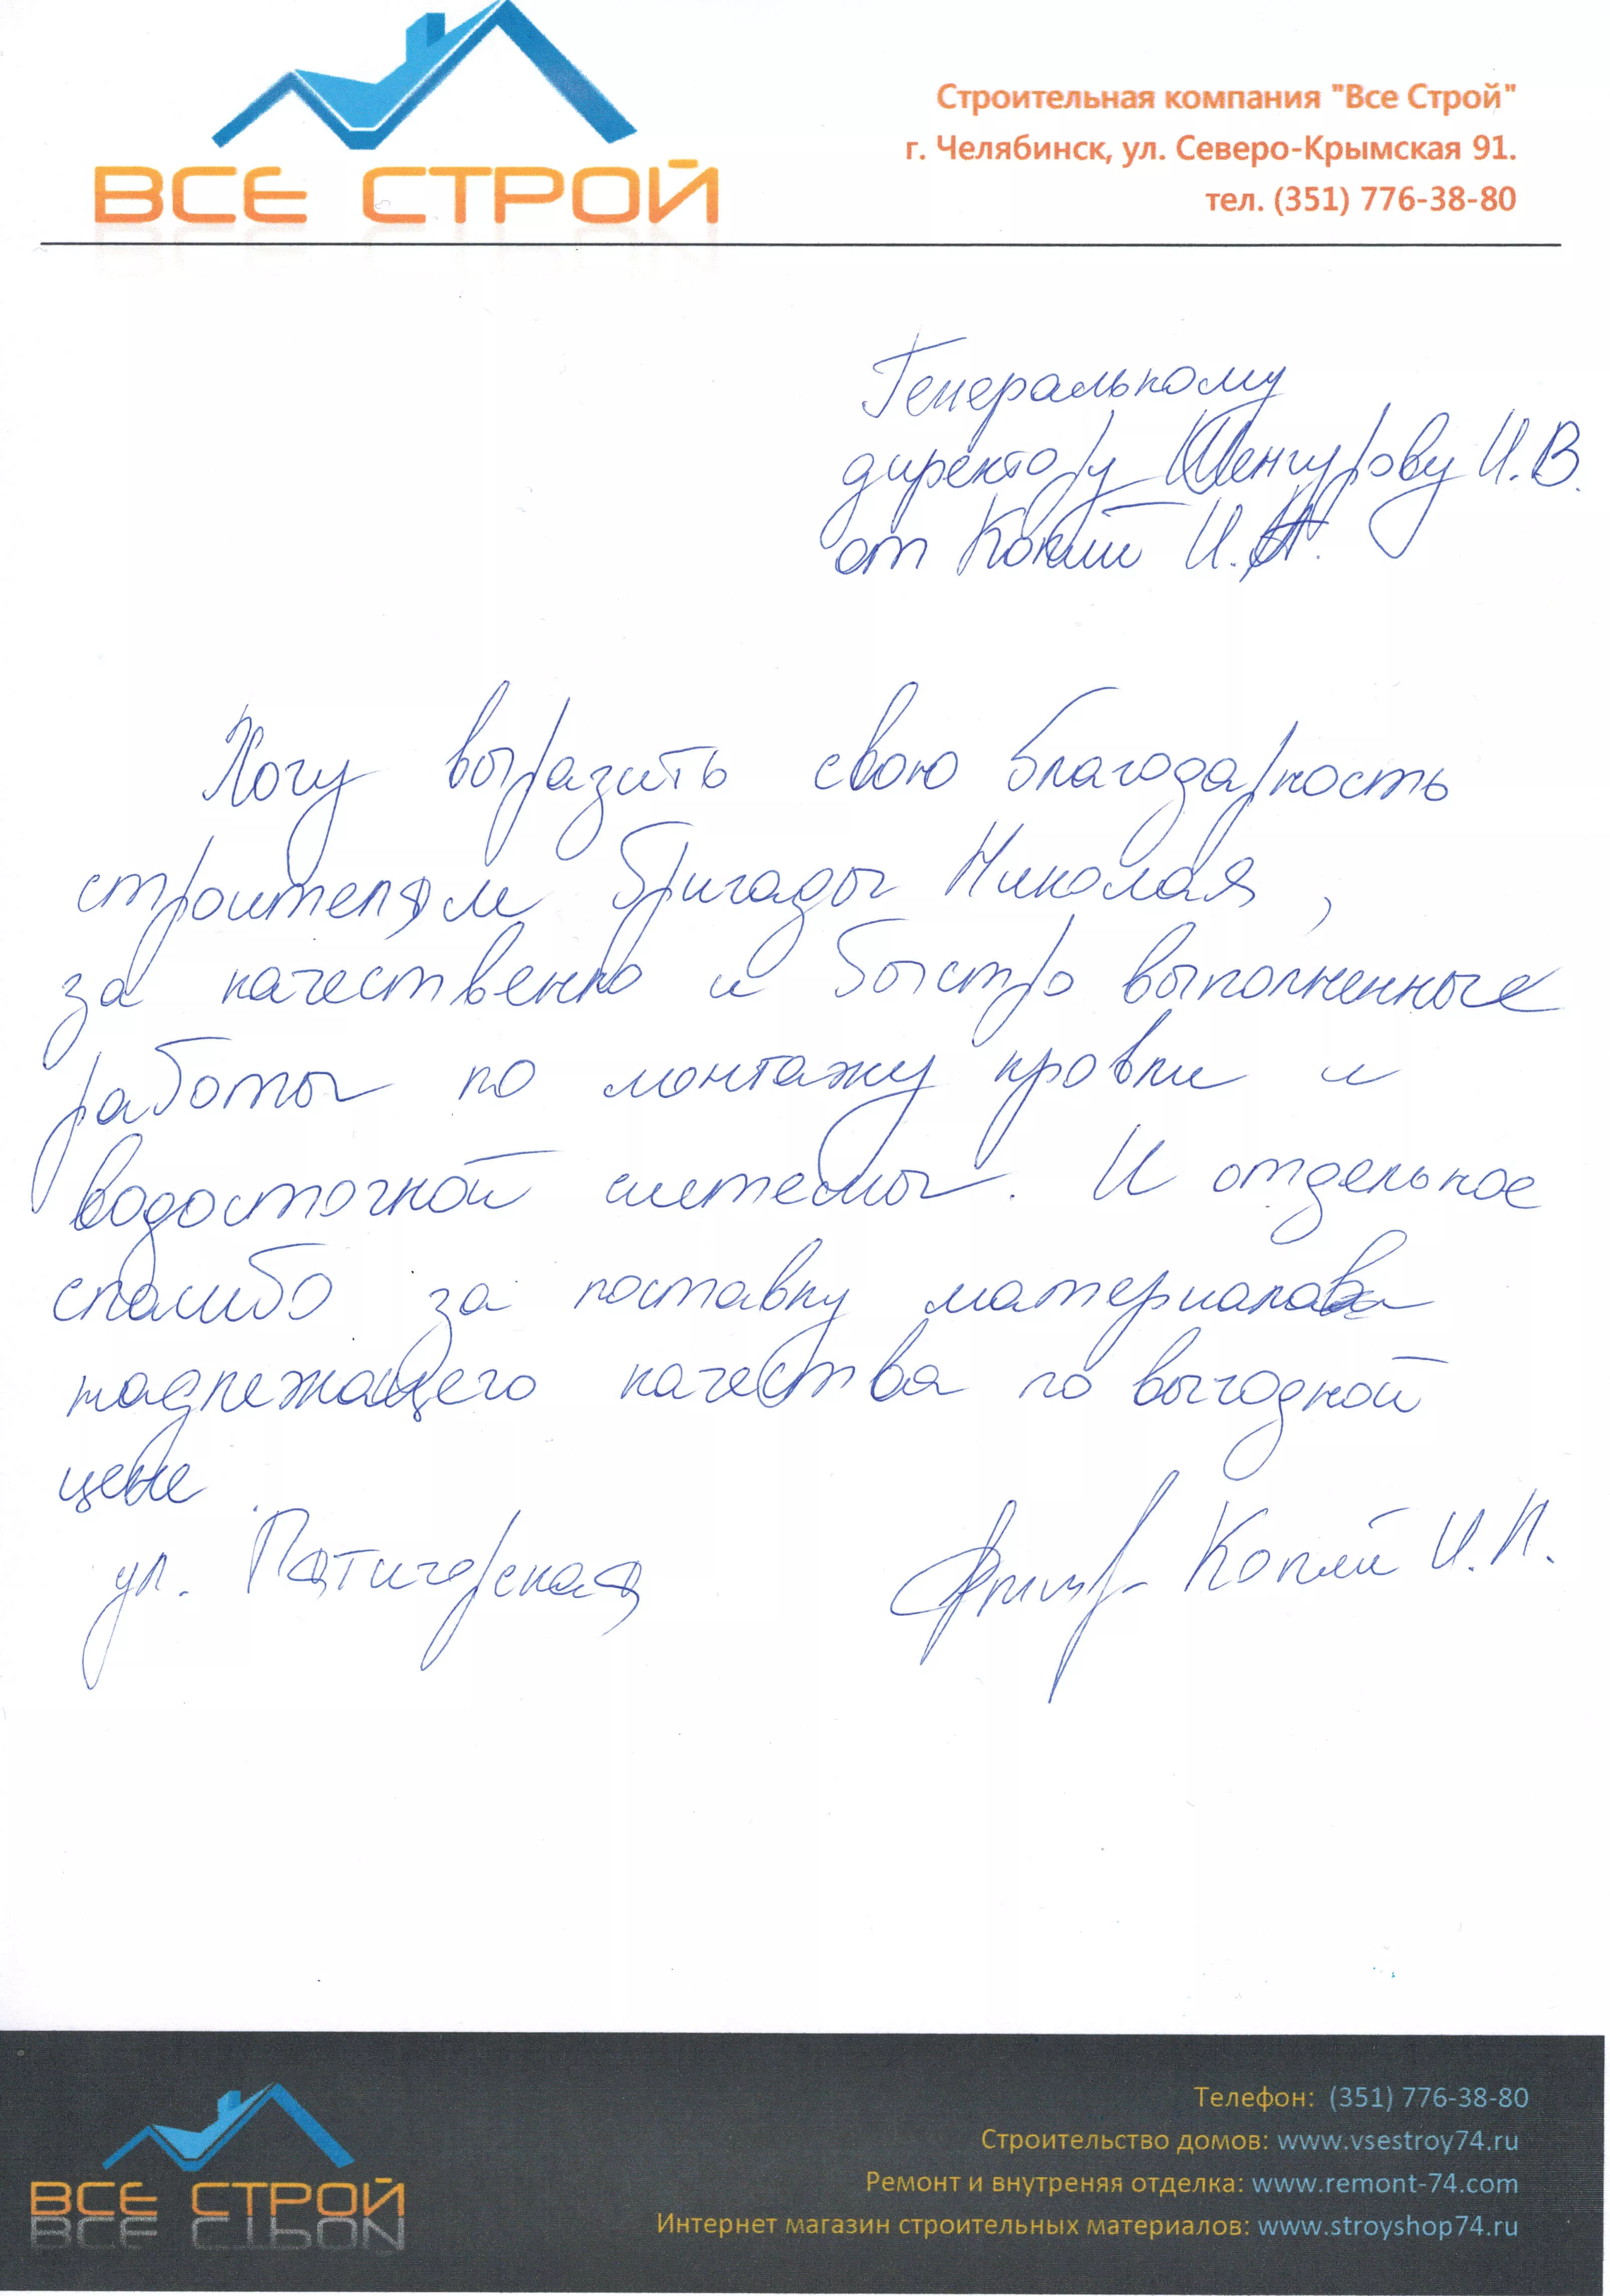 ВСЕ СТРОЙ
Строительная компания "Все Строй"
г. Челябинск, ул. Северо-Крымская 91.
тел. (351) 776-38-80
Генеральному
директору Шенгурову И.В.
от Копий И.П.
Хочу выразить свою благодарность
строителям бригады Николая,
за качественно и быстро выполненные
работы по монтажу кровли и
водосточной системы. И отдельное
спасибо за поставку материалов
надлежащего качества по выгодной
цене.
ул. Пятигорская
Копий И.П.
ВСЕ СТРОЙ
Телефон: (351) 776-38-80
Строительство домов: www.vsestroy74.ru
Ремонт и внутреняя отделка: www.remont-74.com
Интернет магазин строительных материалов: www.stroyshop74.ru